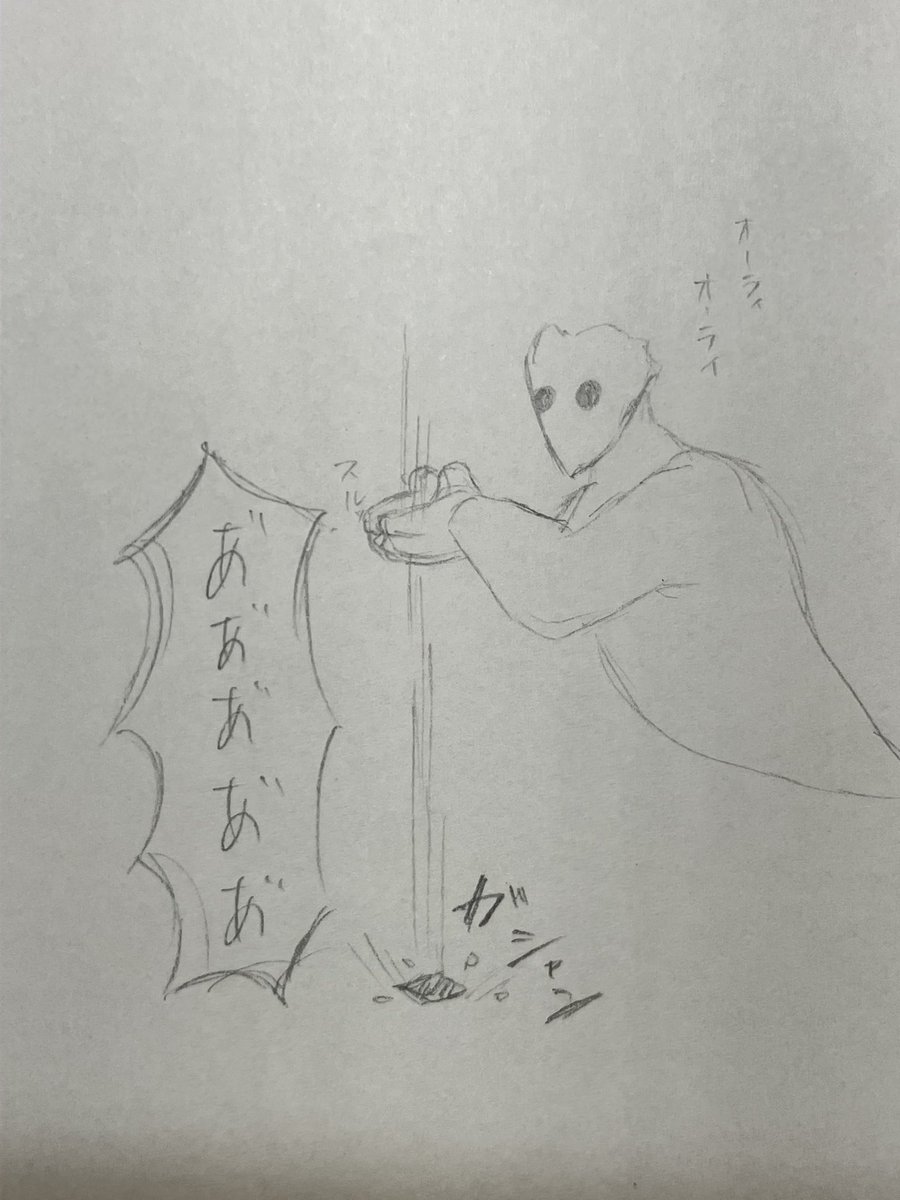 オーライ
オーライ
スル
あ゛あ゛あ゛あ゛あ゛
ガシャン